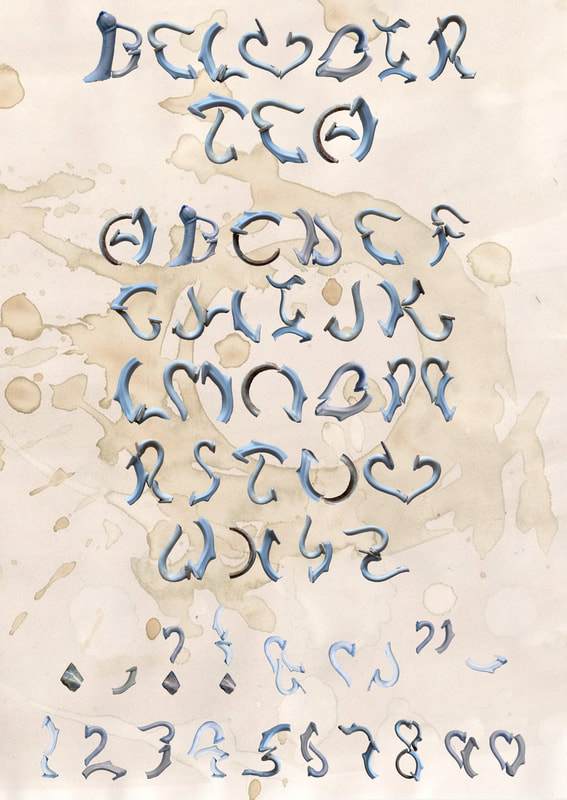 BELVOIR
TEA
ABCDEF
GHIJK
LMNOPQ
RSTUV
WXYZ
. , ? ! & ( ) " -
1234567890